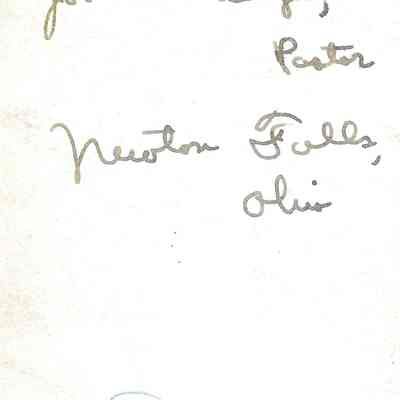 Pastor
Newton Falls,
Ohio